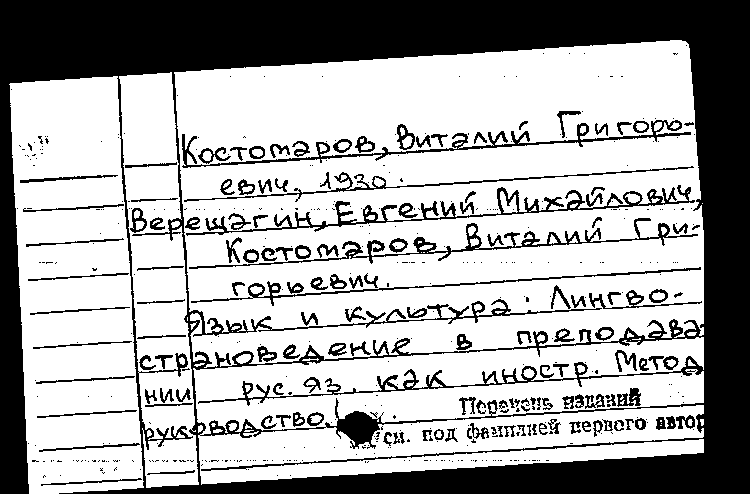 Костомаров, Виталий Григорь-
евич, 1930.
Верещагин, Евгений Михайлович,
Костомаров, Виталий Гри-
горьевич.
Язык и культура: Лингво-
страноведение в преподава-
нии рус. яз. как иностр. Метод
руководство.
Перечень изданий
см. под фамилией первого автор